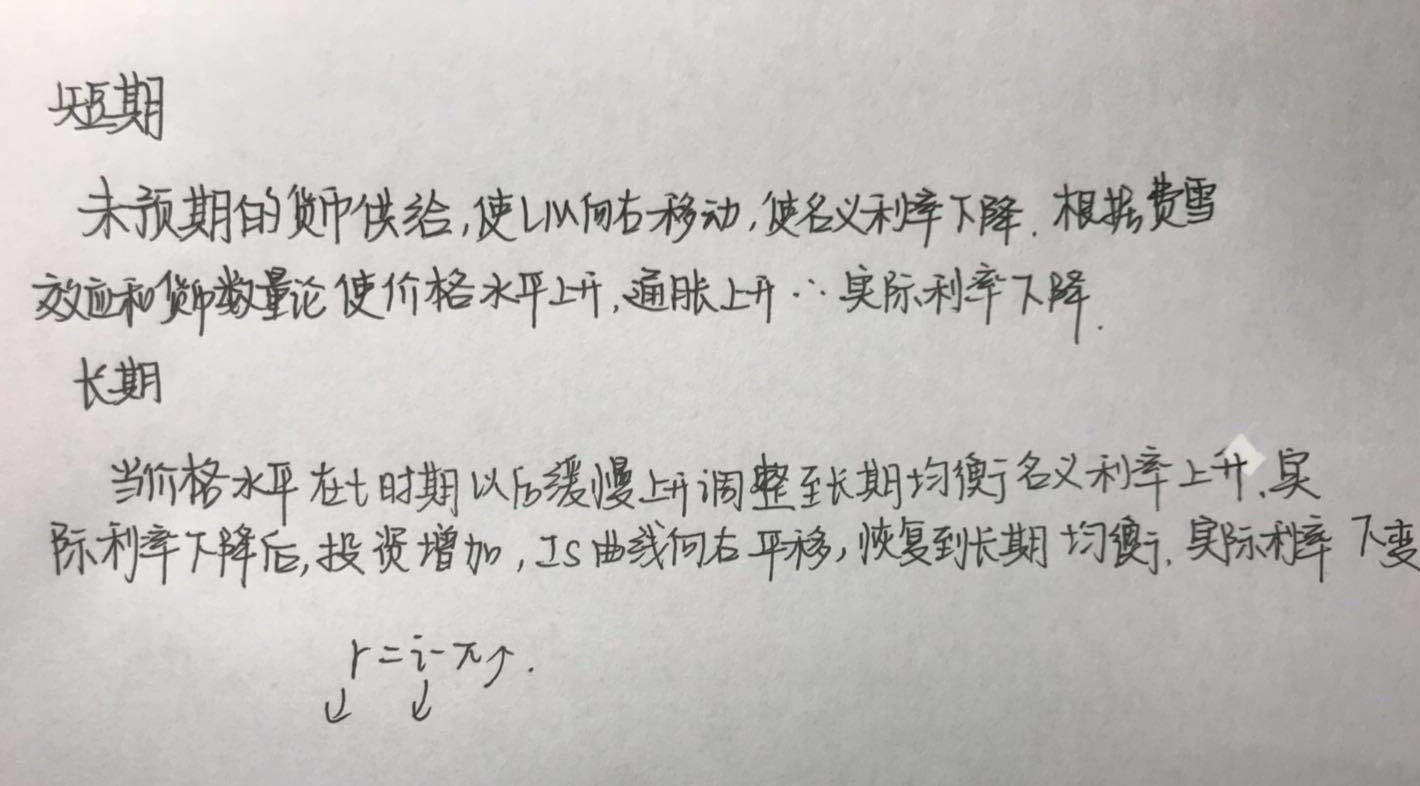 短期
未预期的货币供给,使LM向右移动,使名义利率下降.根据费雪
效应和货币数量论使价格水平上升,通胀上升∴实际利率下降.
长期
当价格水平在t时期以后缓慢上升调整至长期均衡名义利率上升,实
际利率下降后,投资增加,IS曲线向右平移,恢复到长期均衡.实际利率不变
r=i-π↑.
↓ ↓